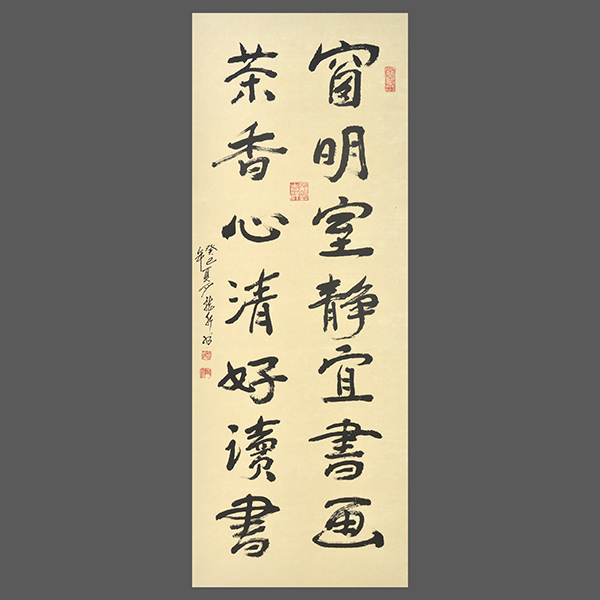 窗明室静宜書画
茶香心清好讀書
癸巳夏
年